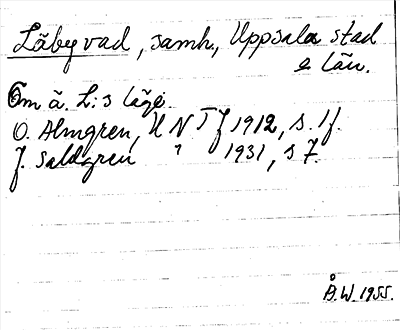 Läby vad, samh., Uppsala stad
o län.
Om ä. L:s läge.
O. Almgren, UNTJ 1912, s. 1f.
J. Sahlgren " 1931, s 7.
Å.W. 1955.